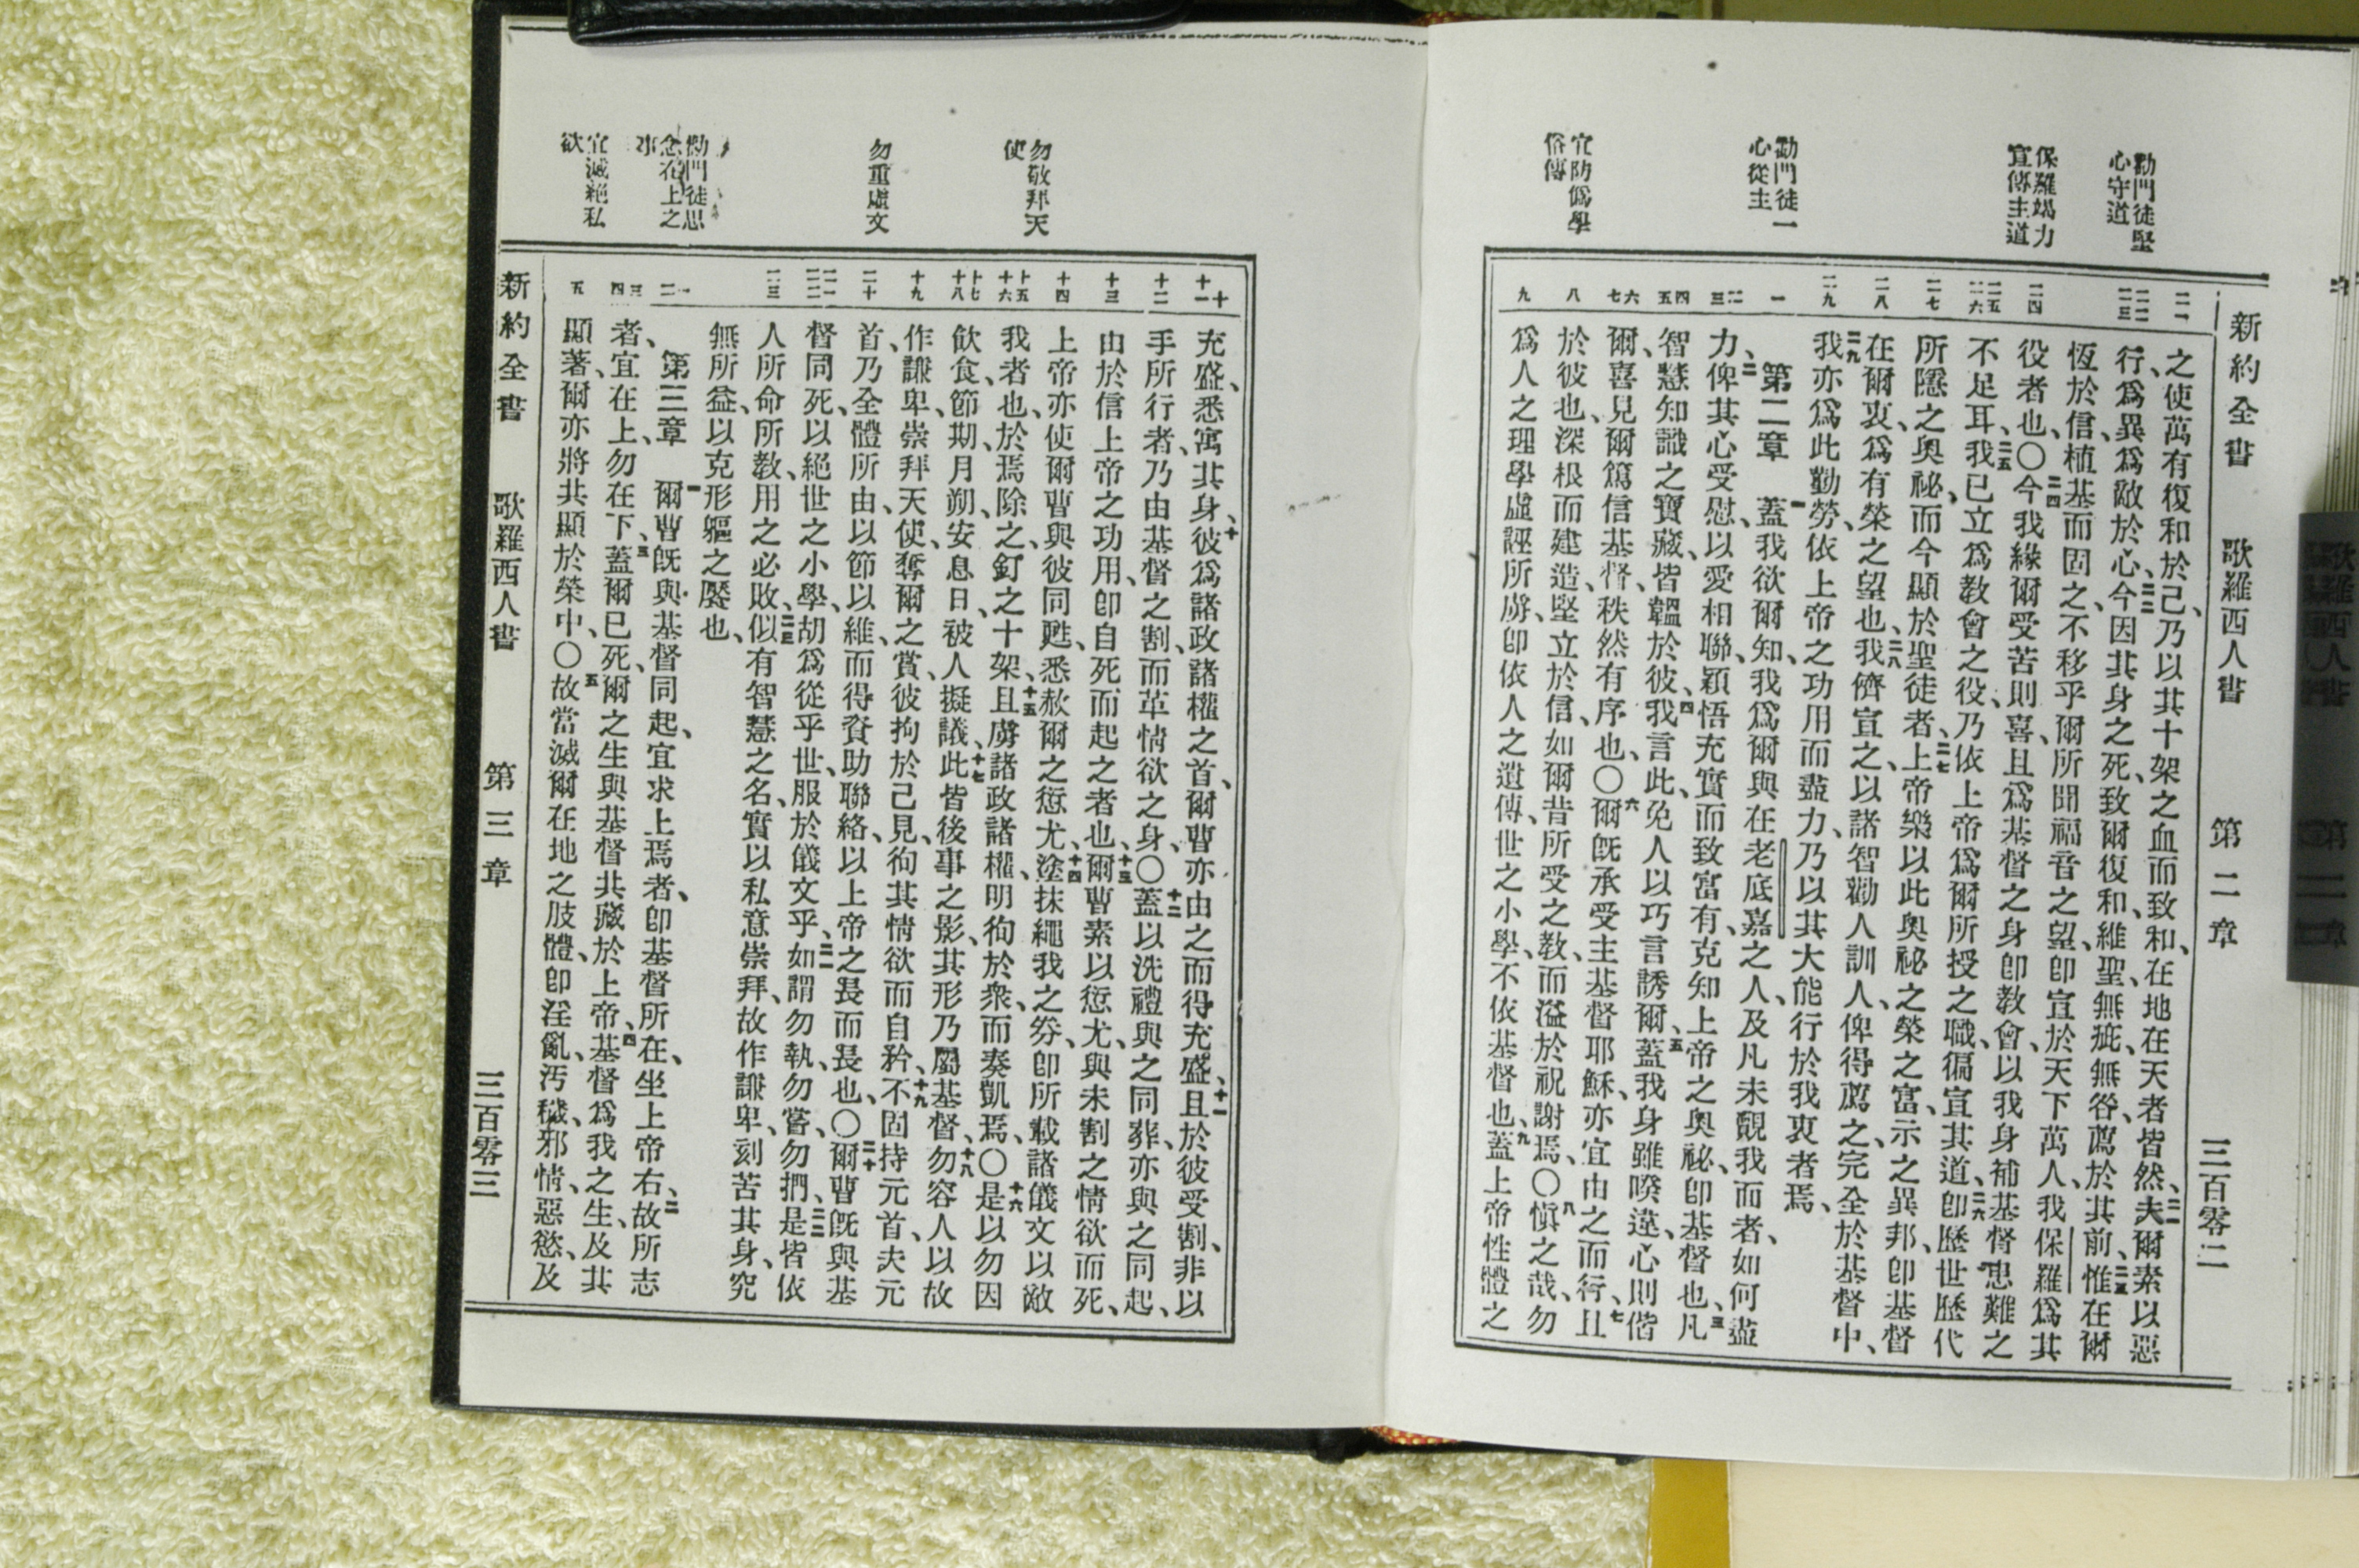 新約全書 歌羅西人書 第二章 三百零二
勸門徒堅
心守道
保羅竭力
宣傳主道
勸門徒一
心從主
宜防僞學
俗傳
二一
二二
二三
二四
二五
二六
二七
二八
二九
一
二
三
四
五
六
七
八
九
之使萬有復和於己、乃以其十架之血而致和、在地在天者皆然、二一夫爾素以惡
行、爲異爲敵於心、二二今因其身之死、致爾復和、維聖、無疵、無咎、薦於其前、二三惟在爾
恆於信、植基而固之、不移乎爾所聞福音之望、卽宣於天下萬人、我保羅爲其
役者也、〇二四今我緣爾受苦則喜、且爲基督之身卽教會、以我身補基督患難之
不足耳、二五我已立爲教會之役、乃依上帝爲爾所授之職、徧宣其道、二六卽歷世歷代
所隱之奧祕、而今顯於聖徒者、二七上帝樂以此奧祕之榮之富、示之異邦、卽基督
在爾衷、爲有榮之望也、二八我儕宣之、以諸智勸人訓人、俾得薦之完全於基督中、
二九我亦爲此勤勞、依上帝之功用而盡力、乃以其大能行於我衷者焉、
第二章 一蓋我欲爾知、我爲爾與在老底嘉之人、及凡未覿我面者、如何盡
力、二俾其心受慰、以愛相聯、穎悟充實而致富有、克知上帝之奧祕、卽基督也、三凡
智慧知識之寶藏、皆韞於彼、四我言此、免人以巧言誘爾、五蓋我身雖暌違、心則偕
爾、喜見爾篤信基督、秩然有序也、〇六爾旣承受主基督耶穌、亦宜由之而行、七且
於彼也、深根而建造、堅立於信、如爾昔所受之教、而溢於祝謝焉、〇八愼之哉、勿
爲人之理學虛誣所虜、卽依人之遺傳、世之小學、不依基督也、九蓋上帝性體之
勿敬拜天
使
勿重虛文
勸門徒思
念在上之
事
宜滅絕私
欲
十
十一
十二
十三
十四
十五
十六
十七
十八
十九
二十
二一
二二
二三
一
二
三
四
五
充盛、悉寓其身、十彼爲諸政諸權之首、爾曹亦由之而得充盛、十一且於彼受割、非以
手所行者、乃由基督之割、而革情欲之身、〇十二蓋以洗禮與之同葬、亦與之同起、
由於信上帝之功用、卽自死而起之者也、十三爾曹素以愆尤、與未割之情欲而死、
上帝亦使爾曹與彼同甦、悉赦爾之愆尤、十四塗抹繩我之券、卽所載諸儀文以敵
我者也、於焉除之、釘之十架、十五且虜諸政諸權、明徇於衆、而奏凱焉、〇十六是以勿因
飲食、節期、月朔、安息日、被人擬議、十七此皆後事之影、其形乃屬基督、十八勿容人以故
作謙卑、崇拜天使、奪爾之賞、彼拘於己見、徇其情欲而自矜、十九不固持元首、夫元
首、乃全體所由、以節以維、而得資助聯絡、以上帝之長而長也、〇二十爾曹旣與基
督同死、以絕世之小學、胡爲從乎世、服於儀文乎、二一如謂勿執、勿嘗、勿捫、二二是皆依
人所命所教、用之必敗、二三似有智慧之名、實以私意崇拜、故作謙卑、刻苦其身、究
無所益、以克形軀之饜也、
第三章 一爾曹旣與基督同起、宜求上焉者、卽基督所在、坐上帝右、二故所志
者、宜在上、勿在下、三蓋爾已死、爾之生與基督共藏於上帝、四基督爲我之生、及其
顯著、爾亦將共顯於榮中、〇五故當滅爾在地之肢體、卽淫亂、汚穢、邪情、惡慾、及
新約全書 歌羅西人書 第三章 三百零三